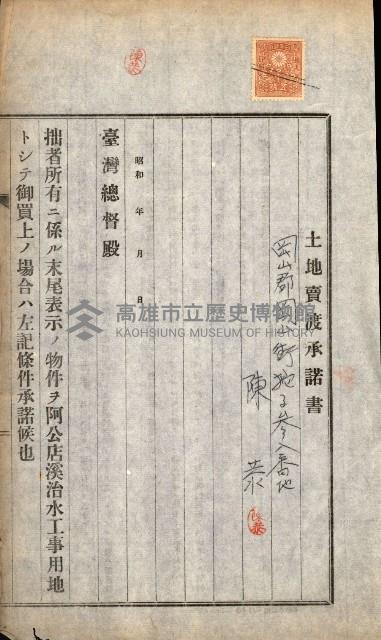 土地賣渡承諾書
岡山郡岡山街
陳恭
昭和　年　月　日
臺灣總督殿
拙者所有ニ係ル末尾表示ノ物件ヲ阿公店溪治水工事用地
トシテ御買上ノ場合ハ左記條件承諾候也
高雄市立歷史博物館
KAOHSIUNG MUSEUM OF HISTORY